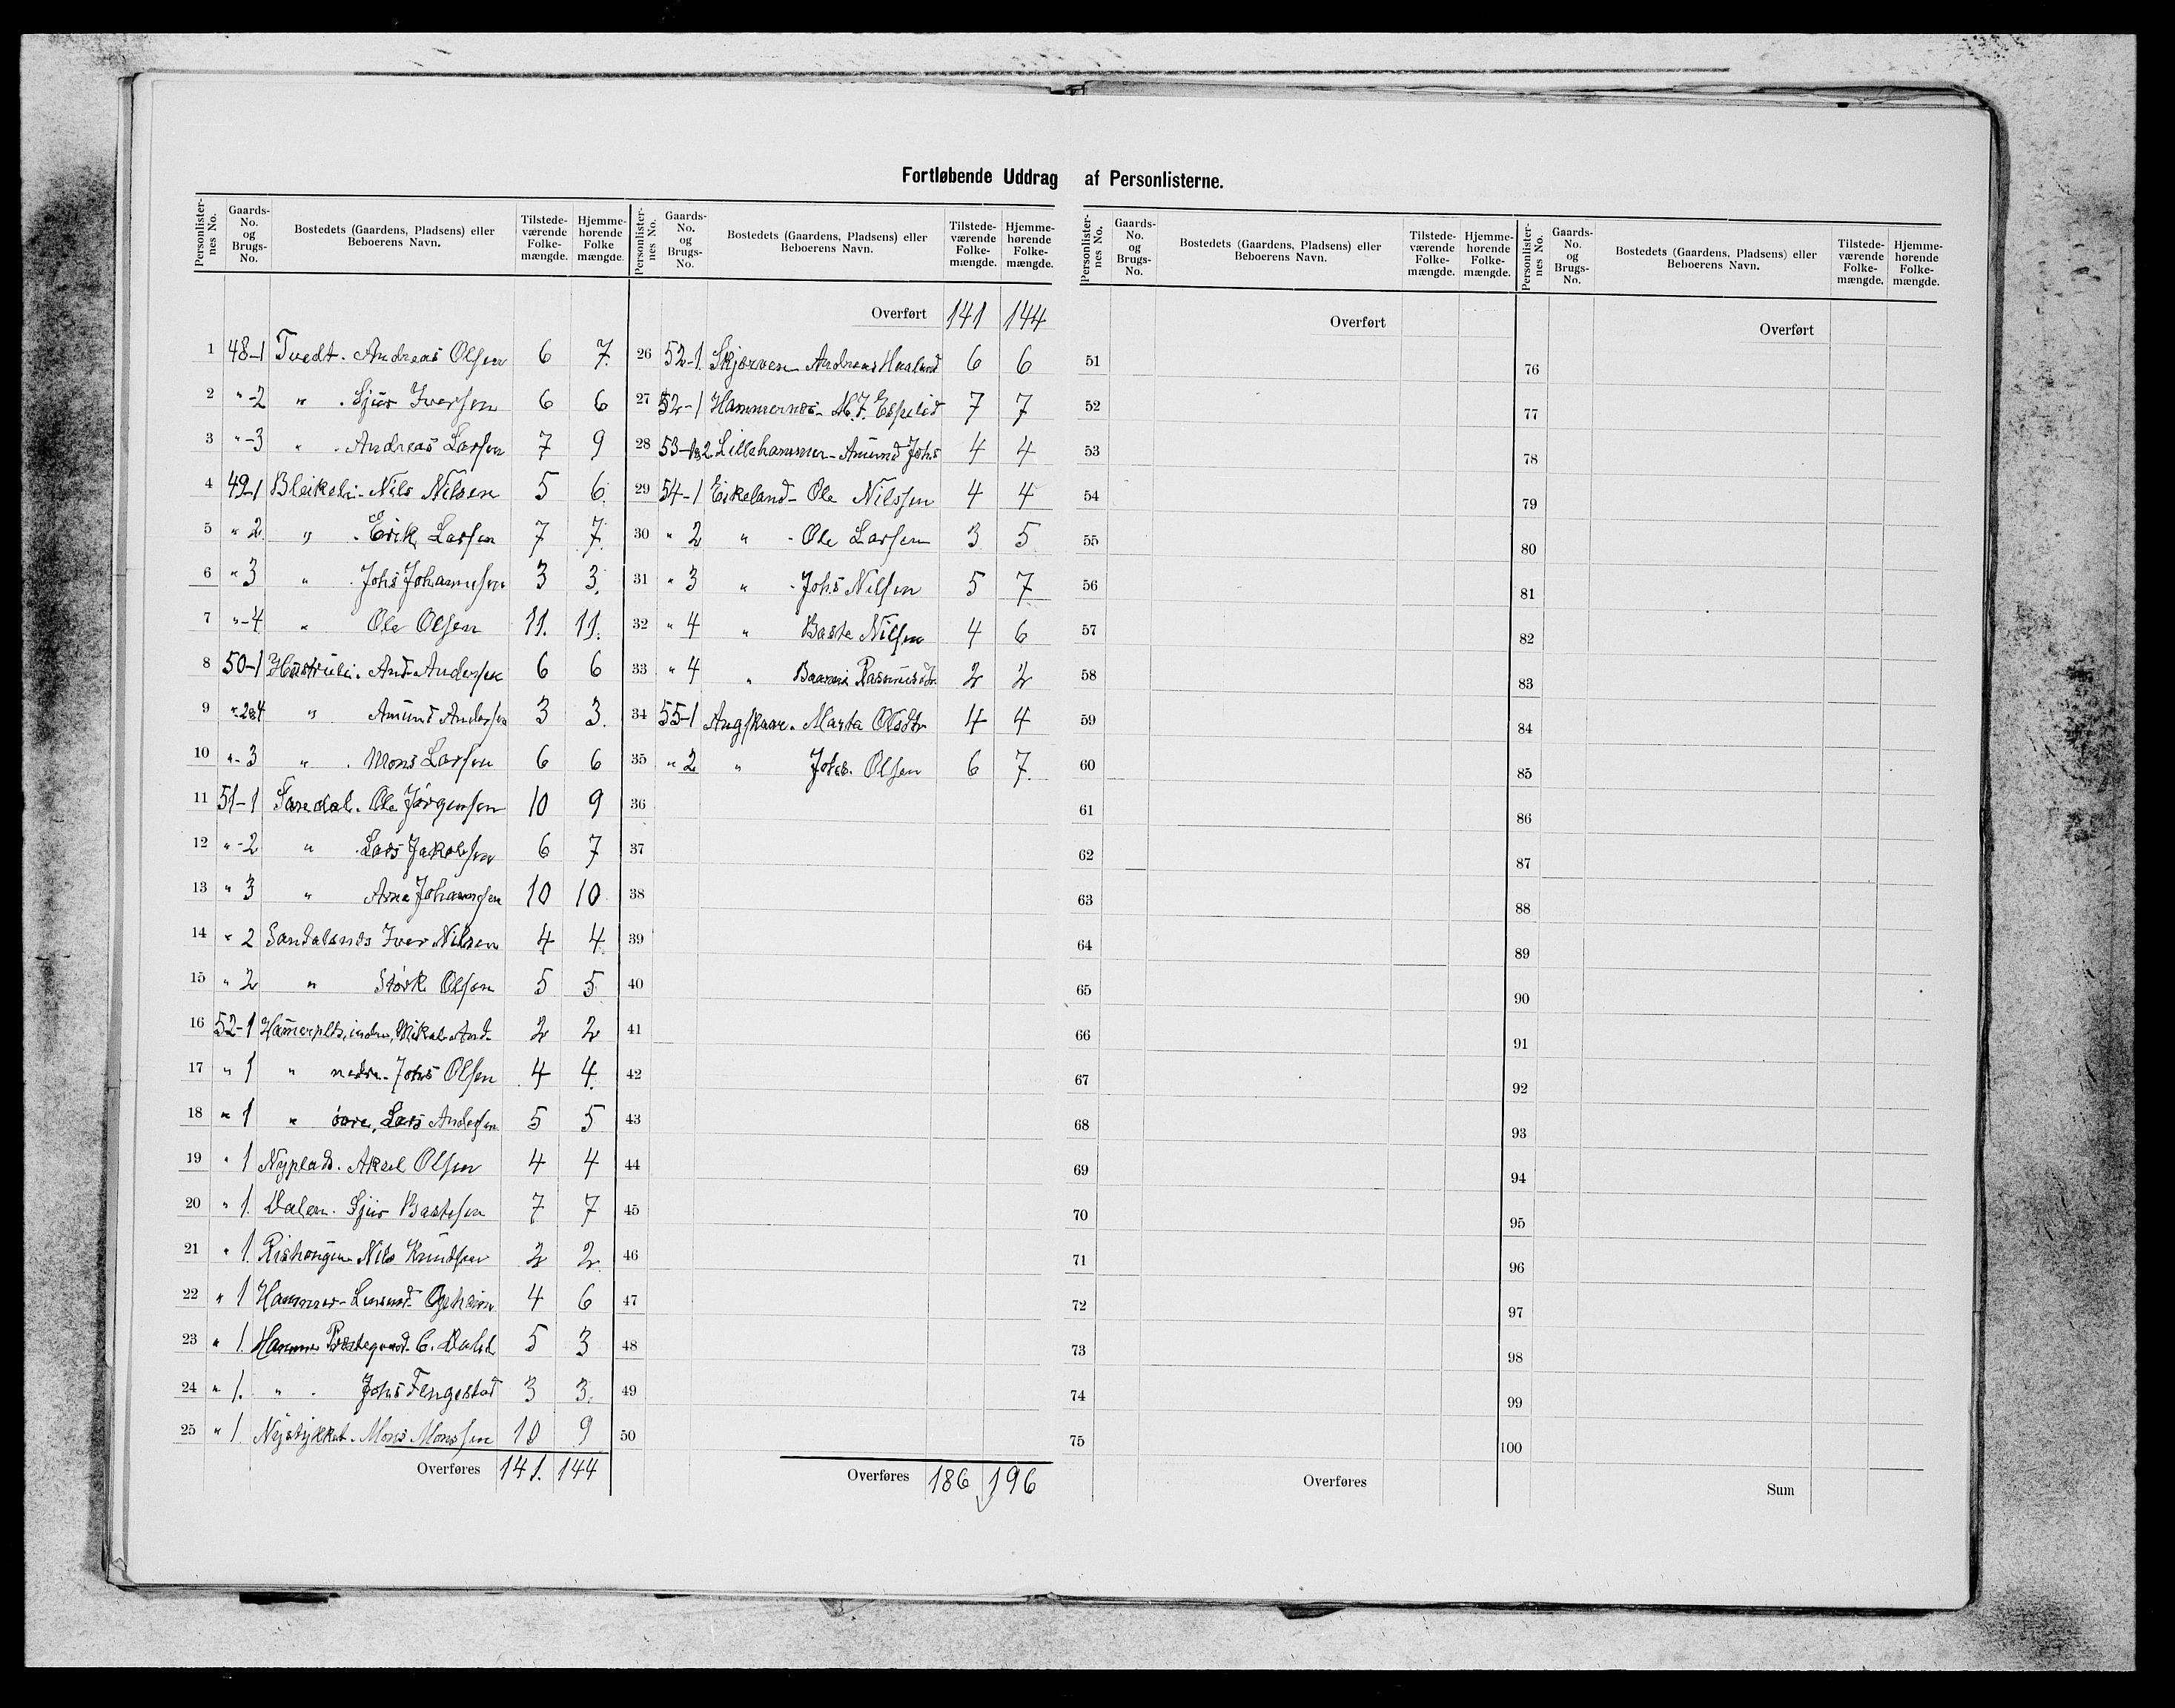 Fortløbende Uddrag af Personlisterne.
Personlister- nes No. Gaards- No. og Brugs- No. Bostedets (Gaardens, Pladsens) eller Beboerens Navn. Tilstede- værende Folke- mængde. Hjemme- hørende Folke mængde.
1 48-1 Tvedt. Andreas Olsen 6 7.
2 "-2 " . Sjur Iversen 6 6
3 "-3 " . Andreas Larsen 7 9
4 49-1 Bleikeli- Nils Nilsen 5 6.
5 " 2 " . Erik Larsen 7 7.
6 " 3 " . Johs Johannesen 3 3.
7 "-4 " Ole Olsen 11. 11.
8 50-1 And Andersen 6 6
9 "-2&4 " Amund Andersen 3 3.
10 "-3 " . Mons Larsen 6 6
11 51-1 Ole Jörgensen 10 9
12 "-2 " . Lars Jakobsen 6 7
13 " 3 " Arne Johannesen 10 10
14 " 2 Iver Nilsen 4 4.
15 " 2 " Störk Olsen 5 5
16 52-1 Hammerplds, indre, Mikal And. 2 2
17 " 1 " nedre. Johs Olsen 4 4.
18 " 1 " övre, Lars Andersen 5 5
19 " 1 Nyplads. Aksel Olsen 4 4
20 " 1. Dalen. Sjur Bastesen 7 7
21 " 1. Rishaugen Nils Knudsen 2 2.
22 " 1 Hammer- Lensmd. 4 6
23 " 1. Hammer Præstegaard. C. Dahl 5 3
24 " 1. " . Johs Fengestad 3 3.
25 " 1. Nystykket. Mons Monssen 10 9
Overføres 141. 144
Personlister- nes No. Gaards- No. og Brugs- No. Bostedets (Gaardens, Pladsens) eller Beboerens Navn. Tilstede- værende Folke- mængde. Hjemme- hørende Folke- mængde.
Overført 141 144
26 52-1. Skjerven Andreas Haaland 6 6
27 52-1 Hammernes- Espelid 7 7
28 53-1&2 Lillehammer- Amund Johs 4 4
29 54-1 Eikeland- Ole Nilssen 4 4
30 " 2 " - Ole Larsen 3 5
31 " 3 " - Johs Nilsen 5 7
32 " 4 " Baste Nilsen 4 6
33 " 4 " Rasmusdtr 2 2
34 55-1 Angskaar. Marta Olsdtr 4 4
35 " 2 " Johs. Olsen 6 7.
36
37
38
39
40
41
42
43
44
45
46
47
48
49
50
Overføres 186 196
Personlister- nes No. Gaards- No. og Brugs- No. Bostedets (Gaardens, Pladsens) eller Beboerens Navn. Tilstede- værende Folke- mængde. Hjemme- hørende Folke- mængde.
Overført
51
52
53
54
55
56
57
58
59
60
61
62
63
64
65
66
67
68
69
70
71
72
73
74
75
Overføres
Personlister- nes No. Gaards- No. og Brugs- No. Bostedets (Gaardens, Pladsens) eller Beboerens Navn. Tilstede- værende Folke- mængde. Hjemme- hørende Folke- mængde.
Overført
76
77
78
79
80
81
82
83
84
85
86
87
88
89
90
91
92
93
94
95
96
97
98
99
100
Sum